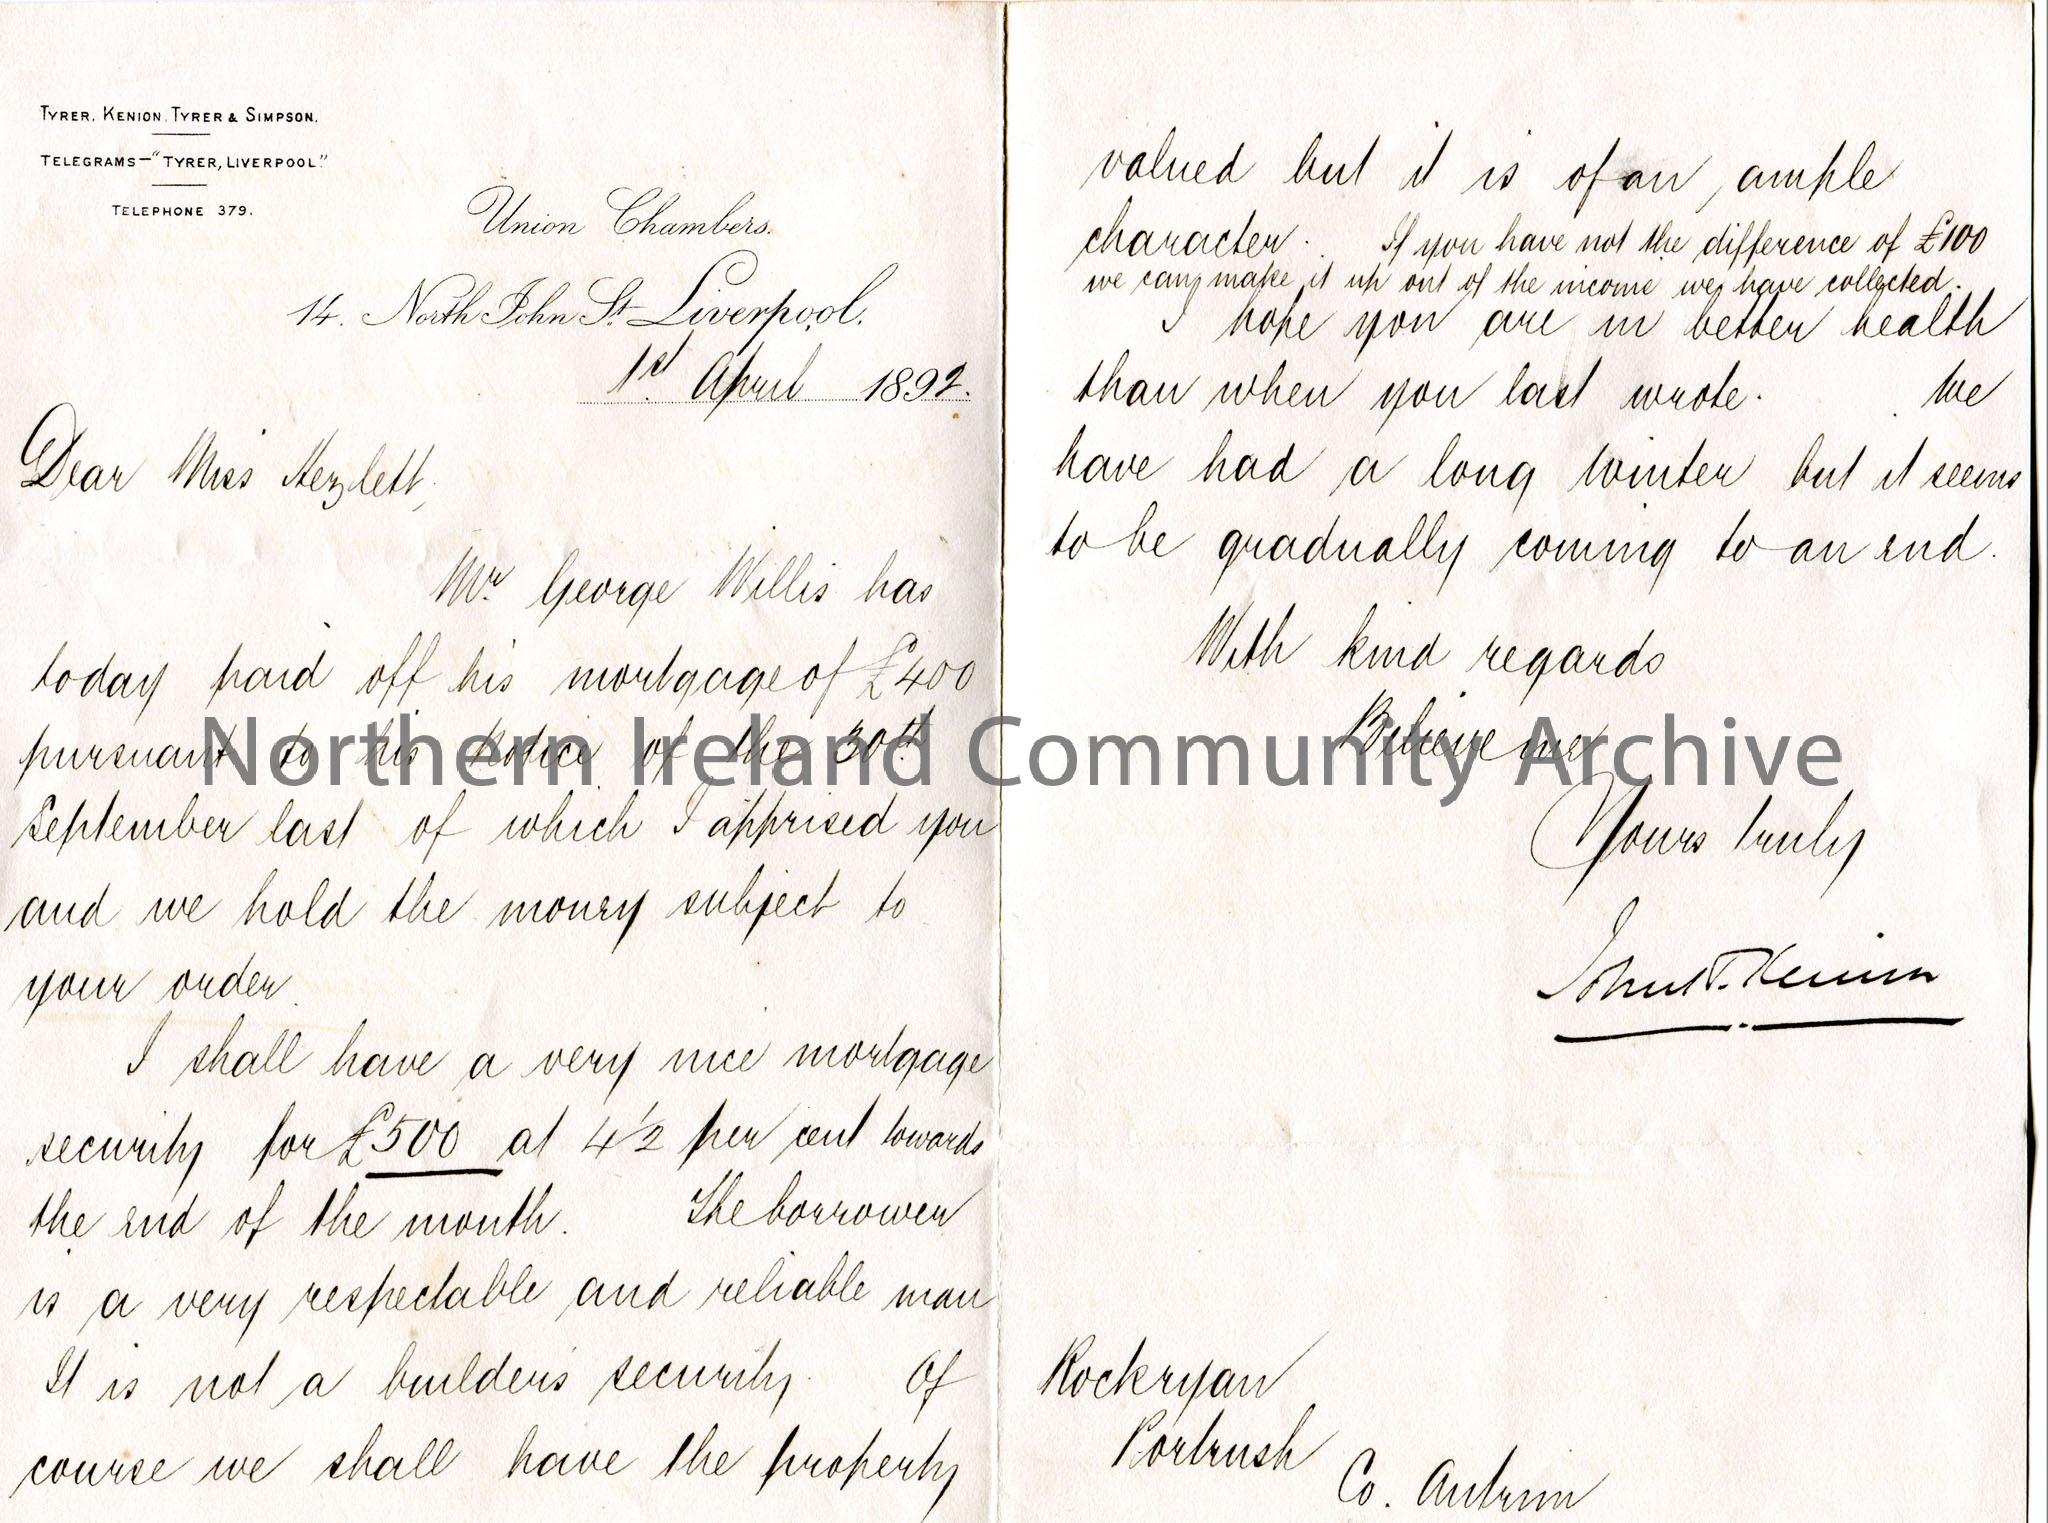 TYRER, KENION, TYRER & SIMPSON.
TELEGRAMS—"TYRER, LIVERPOOL."
TELEPHONE 379.
Union Chambers.
14. North John St. Liverpool.
1st April 1892.
Dear Miss Hezlett,
Mr. George Willis has
today paid off his mortgage of £400
pursuant to his Notice of the 30th
September last of which I apprised you
and we hold the money subject to
your order.
I shall have a very nice mortgage
security for £500 at 4 1/2 per cent towards
the end of the month. The borrower
is a very respectable and reliable man
It is not a builder's security. Of
course we shall have the property
valued but it is of an ample
character. If you have not the difference of £100
we can make it up out of the income we have collected.
I hope you are in better health
than when you last wrote. We
have had a long Winter but it seems
to be gradually coming to an end.
With kind regards
Believe me
Yours truly
John T. Kenion
Rockryan
Portrush
Co. Antrim
Northern Ireland Community Archive